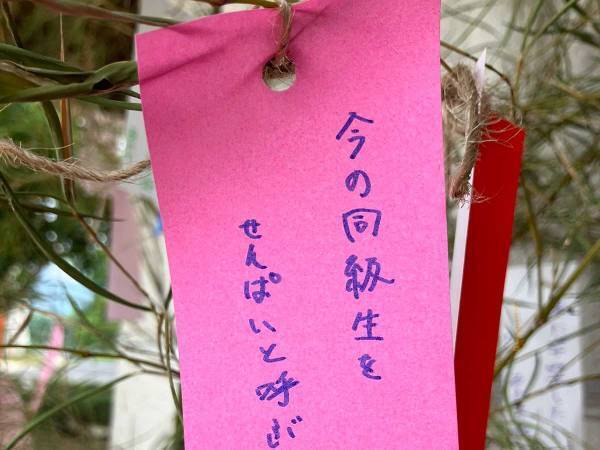 今の同級生を
せんぱいと呼び